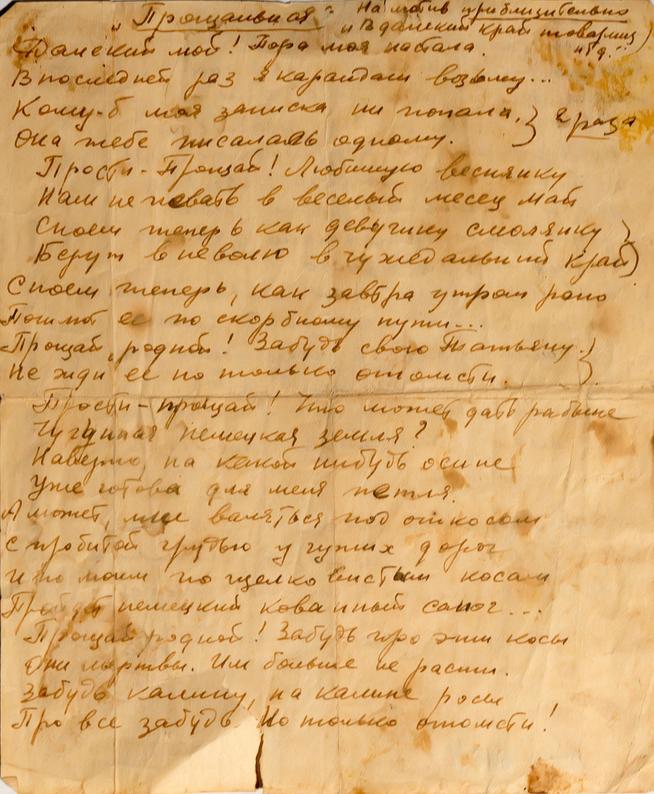 „Прощальная“ На мотив приблизительно
„В далекий край товарищ
и д.“
Далекий мой! Пора моя настала.
В последней раз я карандаш возьму...
Кому-б моя записка ни попала, } 2 раза
Она тебе писалась одному.
Прости-Прощай! Любимую веснянку
Нам не певать в веселый месец май
Споем теперь как девушку смолянку
Берут в неволю в чужедальний край
Споем теперь, как завтра утром рано
Пошлют ее по скорбному пути...
Прощай, родной! Забудь свою Татьяну.
Не жди ее но только отомсти.
Прости-прощай! Что может дать рабыне
Чугунная немецкая земля?
Наверно, на какой нибудь осине
Уже готова для меня петля.
А может, мне валяться под откосом
с пробитой грудью у чужих дорог
И по моим по шелковистым косам
Пройдет немецкий кованный сапог...
Прощай родной! Забудь про эти косы
Они мертвы. Им больше не расти.
Забудь калину, на калине росы
Про все забудь! Но только отомсти!